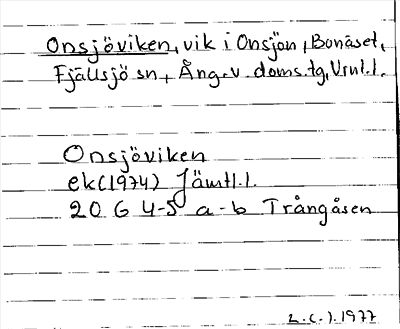 Onsjöviken, vik i Onsjön, Bonäset,
Fjällsjö sn, Ång. v. doms. tg, Vrnl. l.
Onsjöviken
ek (1974) Jämtl. l.
20 G 4-5 a-b Trångåsen
L. C. J. 1977